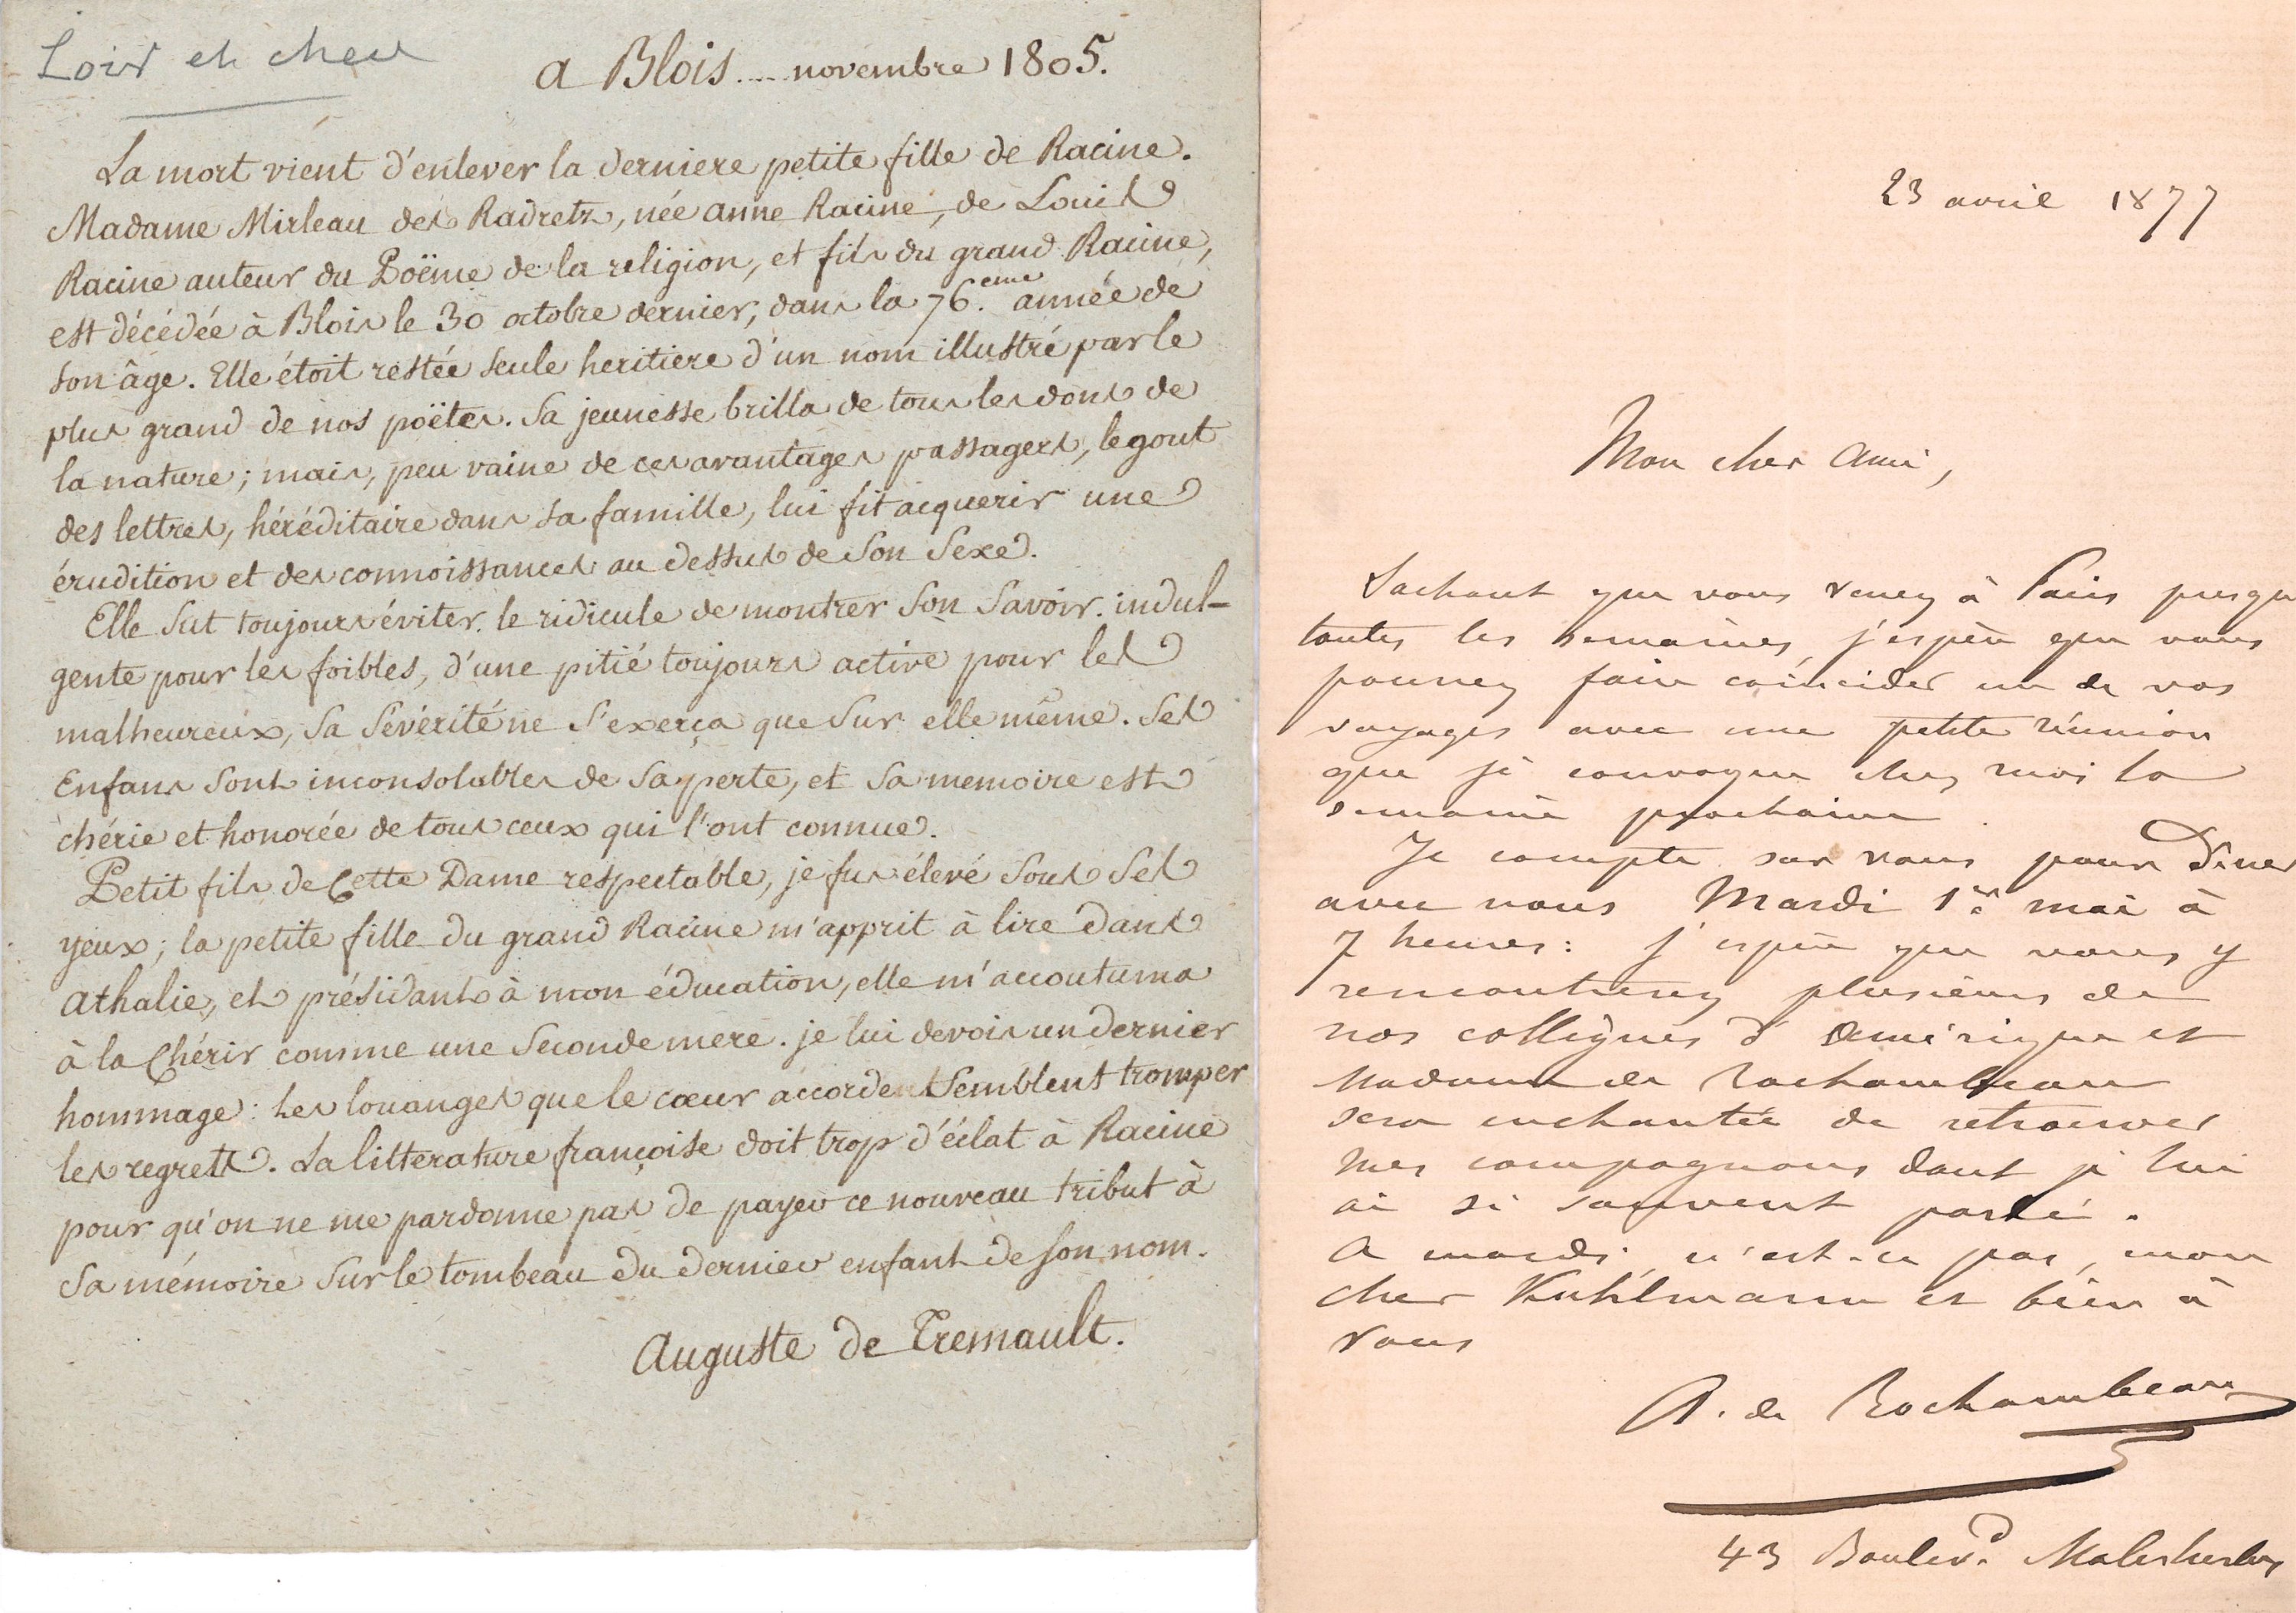 Loir et cher
a Blois .... novembre 1805.
La mort vient d'enlever la derniere petite fille de Racine.
Madame Mirleau des Radretz, née anne Racine, de Louis
Racine auteur du Poëme de la religion, et fils du grand Racine,
est décédée à Blois le 30 octobre dernier, dans la 76.eme année de
son âge. Elle étoit restée seule heritiere d'un nom illustré par le
plus grand de nos poëtes. Sa jeunesse brilla de tous les dons de
la nature; mais, peu vaine de ces avantages passagers, le gout
des lettres, héréditaire dans sa famille, lui fit acquerir une
érudition et des connoissances au dessus de son sexe.
Elle sut toujours éviter le ridicule de montrer son savoir. indul-
gente pour les foibles, d'une pitié toujours active pour les
malheureux, sa sévérité ne s'exerça que sur elle même. Ses
Enfans sont inconsolables de sa perte, et sa memoire est
chérie et honorée de tous ceux qui l'ont connue.
Petit fils de Cette Dame respectable, je fus élevé sous ses
yeux; la petite fille du grand Racine m'apprit à lire dans
athalie, et présidant à mon éducation, elle m'accoutuma
à la Chérir comme une seconde mere. je lui devois un dernier
hommage: les louanges que le cœur accordent semblent tromper
les regrets. La litterature françoise doit trop d'éclat à Racine
pour qu'on ne me pardonne pas de payer ce nouveau tribut à
sa mémoire sur le tombeau du dernier enfant de son nom.
Auguste de Tremault.
23 avril 1877
Mon cher ami,
Sachant que vous venez à Paris presque
toutes les semaines, j'espère que vous
pourrez faire coïncider un de vos
voyages avec une petite réunion
que je convoque chez moi la
semaine prochaine.
Je compte sur vous pour diner
avec nous Mardi 1er mai à
7 heures: j'espère que vous y
rencontrerez plusieurs de
nos collègues d'Amérique et
Madame de Rochambeau
sera enchantée de retrouver
mes compagnons dont je lui
ai si souvent parlé.
A mardi, n'est-ce pas, mon
cher Kuhlmann et bien à
vous
A. de Rochambeau
43 Boulevd. Malesherbes